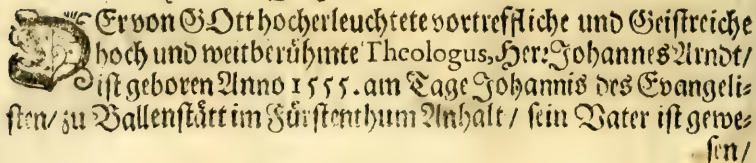 DEr von GOtt hocherleuchtete vortreffliche und Geistreiche
hoch und weitberühmte Theologus, Herr Johannes Arndt/
ist geboren Anno 1555. am Tage Johannis des Evangeli-
sten/ zu Ballenstätt im Fürstenthum Anhalt / sein Vater ist gewe-
sen/